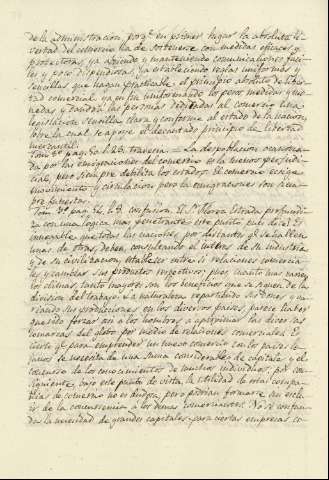 de la administracion, porq.e en primer lugar la absoluta li-
bertad del comercio ha de sostenerse con medidas eficaces y
protectoras, ya abriendo y manteniendo comunicaciones faci-
les y poco dispendiosas, ya estableciendo reglas uniformes y
sencillas que hagan practicable el principio absoluto de liber-
tad comercial, ya en fin uniformando los pesos, medidas y mo-
nedas y dando a las personas dedicadas al comercio una
legislacion sencilla, clara y conforme al estado de la nacion,
sobre la cual se apoye el decantado principio de libertad
mercantil.
Tom. 2.º pag. 50. l. 23. travesia. = La despoblacion ocasiona-
da por las emigraciones del comercio es la menos perjudi-
cial, pero siempre debilita los estados. El comercio exige
movimiento y circulacion pero las emigraciones son siem-
pre funestas.
Tom. 2.º pag. 54. l. 3. confusion. El S.r Florez Estrada profundi-
za con una logica muy penetrante este punto, pues de ser
innegable que todas las naciones, por distantes q.e se hallen
unas de otras, deben, consultando el interes de su industria
y de su civilizacion, establecer entre si relaciones comercia-
les y cambiar sus productos respectivos; pues cuanto mas varien
los climas, tanto mayores son los beneficios que se siguen de la
division del trabajo. La naturaleza repartiendo sus dones y va-
riando sus producciones en los diversos paises, parece haber
querido forzar asi a los hombres a aproximar las diversas
comarcas del globo por medio de relaciones comerciales. Es
cierto q.e para emprender un nuevo comercio con los paises le-
janos se necesita de una suma considerable de capitales y el
concurso de los conocimientos de muchos individuos, por con-
siguiente, bajo este punto de vista, la utilidad de estas compa-
ñias de comercio no es dudosa, pero podrian formarse sin exclu-
ir de la concurrencia a los demas comerciantes. No se confun-
da la necesidad de grandes capitales para ciertas empresas co-